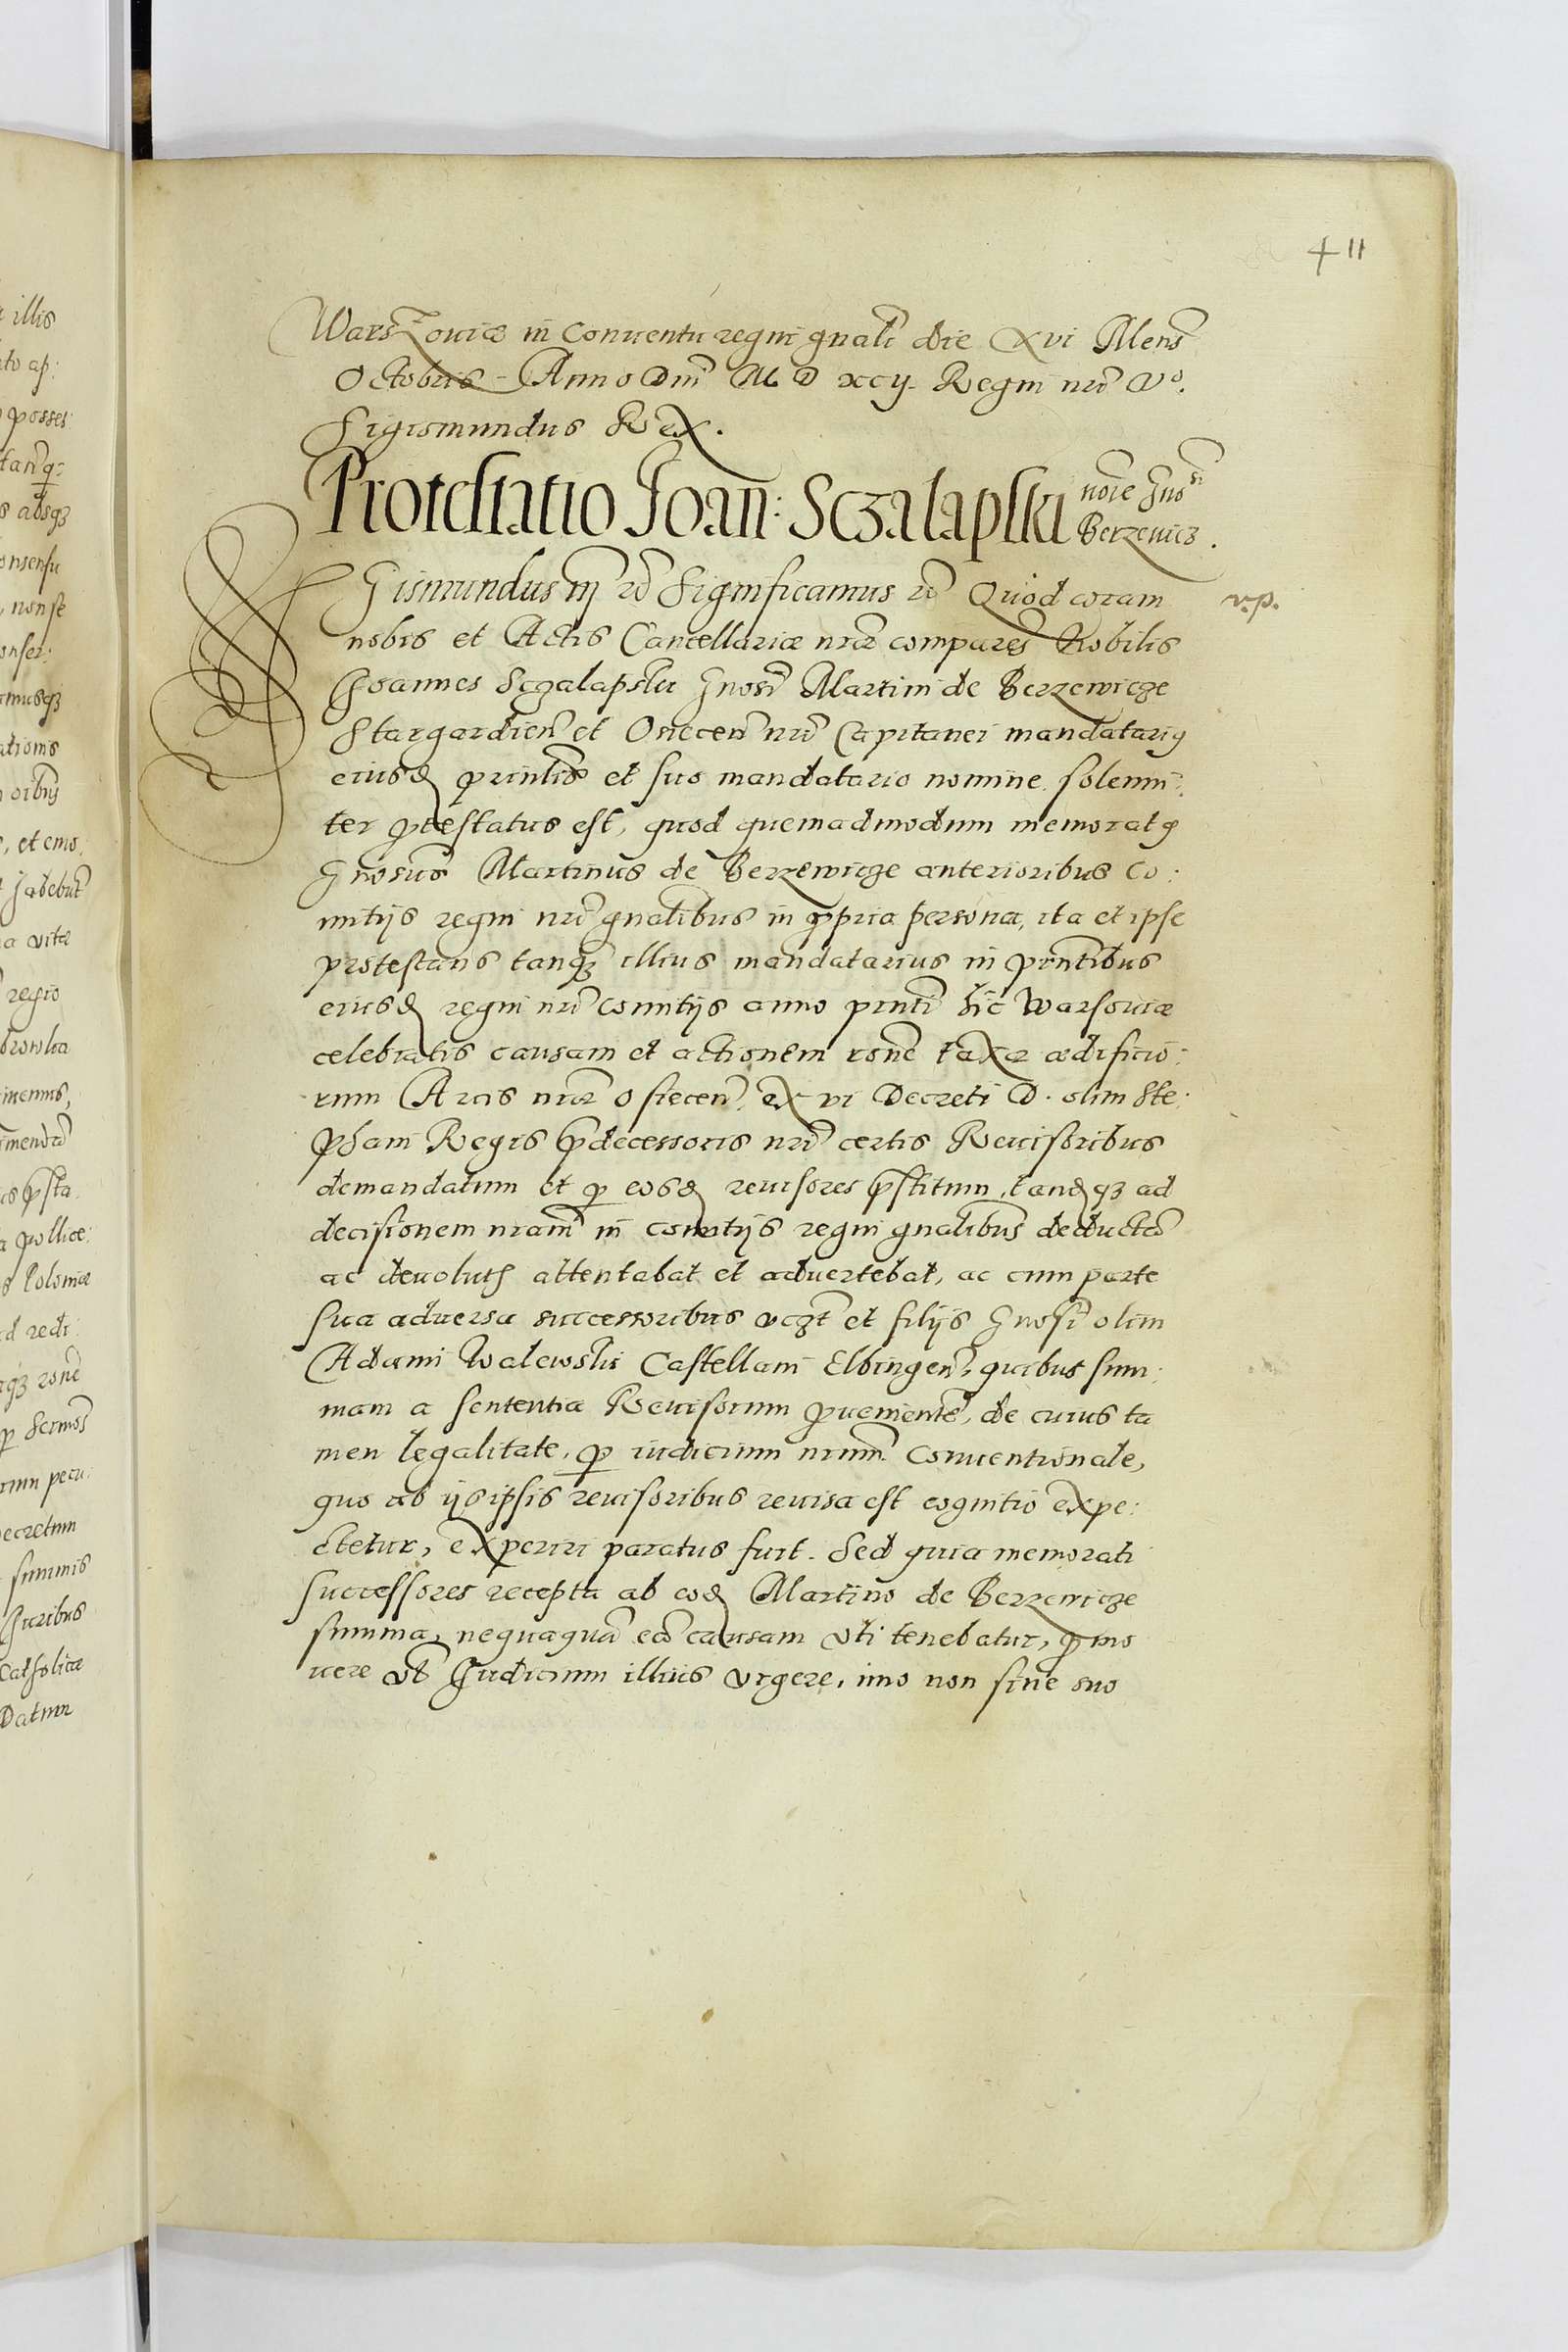 411
Warszouiæ in Conuentu regni gnali die xvi Mens
Octobris Anno Dni M D xcij Regni nri Vo.
Sigismundus Rex.
Protestatio Joan: Sczalapski noie Gnosi
Berzeuicz.
Sigismundus iii etc Significamus etc Quod coram
nobis et Actis Cancellariæ nræ comparens Nobilis
Joannes Sczalapski Gnosi Martini de Berzewicze
Stargardien et Osiecen nri Capitanei mandatarius
eiusd principalis et suo mandatario nomine solenni
ter protestatus est, quod quemadmodum memoratus
Gnosus Martinus de Berzewicze anterioribus Co:
mitijs regni nri gnalibus in propria persona, ita et ipse
protestans tanq illius mandatarius in pntibus
eiusd regni nri comitijs anno pnti hic Warsouiæ
celebratis causam et actionem rone taxæ ædificio:
rum Arcis nræ Osiecen. ex vi Decreti D. olim Ste:
phani Regis prædecessoris nri certis Reuisoribus
demandatum et per eosd reuisores præstitum, tandq ad
decisionem nram in comitijs regni gnalibus deducta
ac deuoluta attentabat et aduertebat, ac cum parte
sua aduersa successoribus vczt et filijs Gnosi olim
Adami Walewski Castellani Elbingen, quibus sum:
mam a sententia Reuisorum prouenientem, de cuius ta
men legalitate, per iudicium nrum Conuentionale,
quo ab ijs ipsis reuisoribus reuisa est cognitio expe:
ctetur, experiri paratus fuit. Sed quia memorati
successores recepta ab eod Martino de Berzewicze
summa, nequaqua ea causam vti tenebatur, promo
uere vt Judicium illius vrgere, imo non sine suo